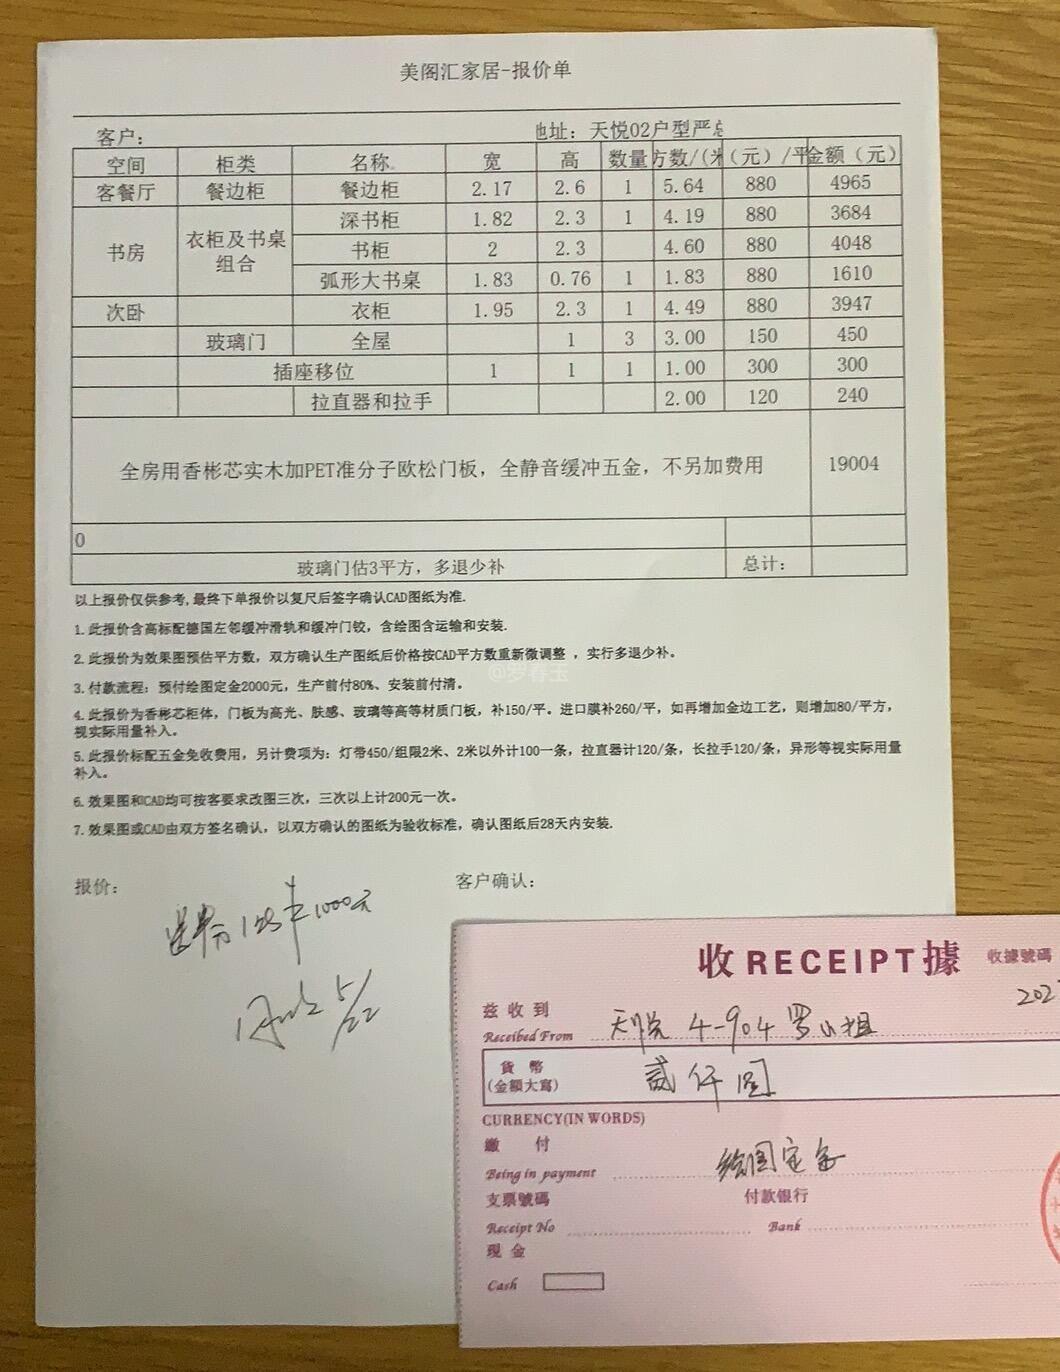 美阁汇家居-报价单
客户: 地址: 天悦02户型严总
空间 柜类 名称 宽 高 数量 方数/(米 (元)/平 金额(元)
客餐厅 餐边柜 餐边柜 2.17 2.6 1 5.64 880 4965
书房 衣柜及书桌组合 深书柜 1.82 2.3 1 4.19 880 3684
书柜 2 2.3 4.60 880 4048
弧形大书桌 1.83 0.76 1 1.83 880 1610
次卧 衣柜 1.95 2.3 1 4.49 880 3947
玻璃门 全屋 1 3 3.00 150 450
插座移位 1 1 1 1.00 300 300
拉直器和拉手 2.00 120 240
全房用香彬芯实木加PET准分子欧松门板，全静音缓冲五金，不另加费用 19004
0
玻璃门估3平方，多退少补 总计:
以上报价仅供参考,最终下单报价以复尺后签字确认CAD图纸为准.
1. 此报价含高标配德国左邻缓冲滑轨和缓冲门铰，含绘图含运输和安装.
2. 此报价为效果图预估平方数，双方确认生产图纸后价格按CAD平方数重新微调整，实行多退少补。
@罗春玉
3. 付款流程: 预付绘图定金2000元，生产前付80%、安装前付清。
4. 此报价为香彬芯柜体，门板为高光、肤感、玻璃等高等材质门板，补150/平。进口膜补260/平，如再增加金边工艺，则增加80/平方，
视实际用量补入。
5. 此报价标配五金免收费用，另计费项为: 灯带450/组限2米、2米以外计100一条，拉直器计120/条，长拉手120/条，异形等视实际用量
补入。
6. 效果图和CAD均可按客要求改图三次，三次以上计200元一次。
7. 效果图或CAD由双方签名确认，以双方确认的图纸为验收标准，确认图纸后28天内安装.
报价: 客户确认:
1000元
5/22
收 RECEIPT 據 收據號碼
202
茲收到
Receibed From 天悦 4-904 罗小姐
貨幣
(金額大寫) 贰仟圆
CURRENCY(IN WORDS)
繳付
Being in payment 绘图定金
支票號碼 付款銀行
Receipt No Bank
現金
Cash